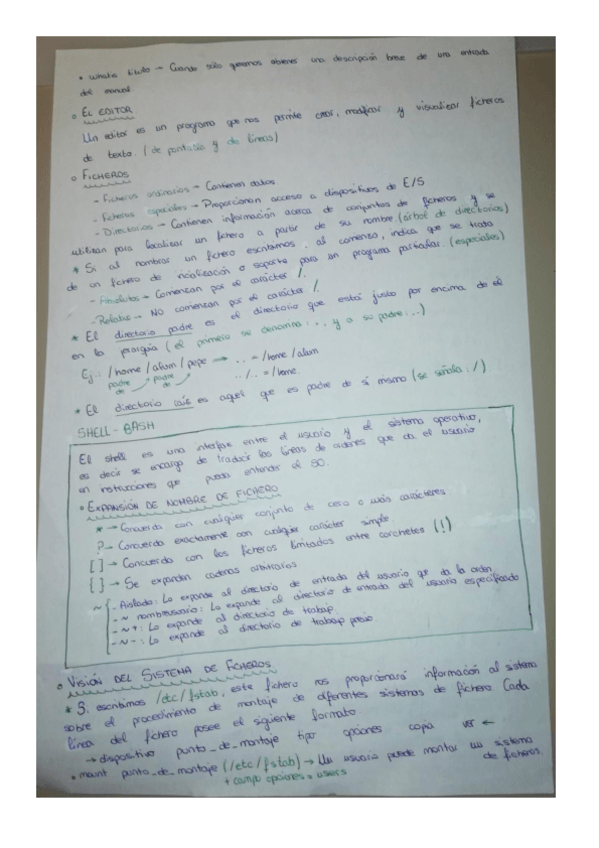 • whatis título → Cuando sólo queremos obtener una descripción breve de una entrada
del manual
○ EL EDITOR
Un editor es un programa que nos permite crear, modificar y visualizar ficheros
de texto. (de pantalla y de líneas)
○ FICHEROS
- Ficheros ordinarios → Contienen datos
- Ficheros especiales → Proporcionan acceso a dispositivos de E/S
- Directorios → Contienen información acerca de conjuntos de ficheros y se
utilizan para localizar un fichero a partir de su nombre. (árbol de directorios)
* Si al nombrar un fichero escribimos . al comienzo, indica que se trata
de un fichero de inicialización o soporte para un programa particular. (especiales)
- Absolutos → Comienzan por el carácter /.
- Relatos → NO comienzan por el carácter /
* El directorio padre es el directorio que está justo por encima de él
en la jerarquía (el primero se denomina: . , y a su padre: ..)
Ej.: /home/alum/pepe → .. = /home/alum
padre de padre de ../.. = /home
* El directorio raíz es aquel que es padre de sí mismo (se señala: /)
SHELL - BASH
El shell es una interfaz entre el usuario y el sistema operativo,
es decir se encarga de traducir las líneas de órdenes que da el usuario
en instrucciones que pueda entender el SO.
• EXPANSIÓN DE NOMBRE DE FICHERO
* → Concuerda con cualquier conjunto de cero o más carácteres
? → Concuerda exactamente con cualquier carácter simple
[ ] → Concuerda con los ficheros limitados entre corchetes (!)
{ } → Se expanden cadenas arbitrarias
~ - Aislado: Lo expande al directorio de entrada del usuario que da la orden
- ~ nombreusuario: Lo expande al directorio de entrada del usuario especificado
- ~ + : Lo expande al directorio de trabajo.
- ~ - : Lo expande al directorio de trabajo previo.
○ VISIÓN DEL SISTEMA DE FICHEROS
* Si escribimos /etc/fstab, este fichero nos proporcionará información al sistema
sobre el procedimiento de montaje de diferentes sistemas de fichero Cada
línea del fichero posee el siguiente formato
→ dispositivo punto_de_montaje tipo opciones copia ver ←
• mount punto_de_montaje (/etc/fstab) → Un usuario puede montar un sistema
de ficheros.
+ campo opciones = users